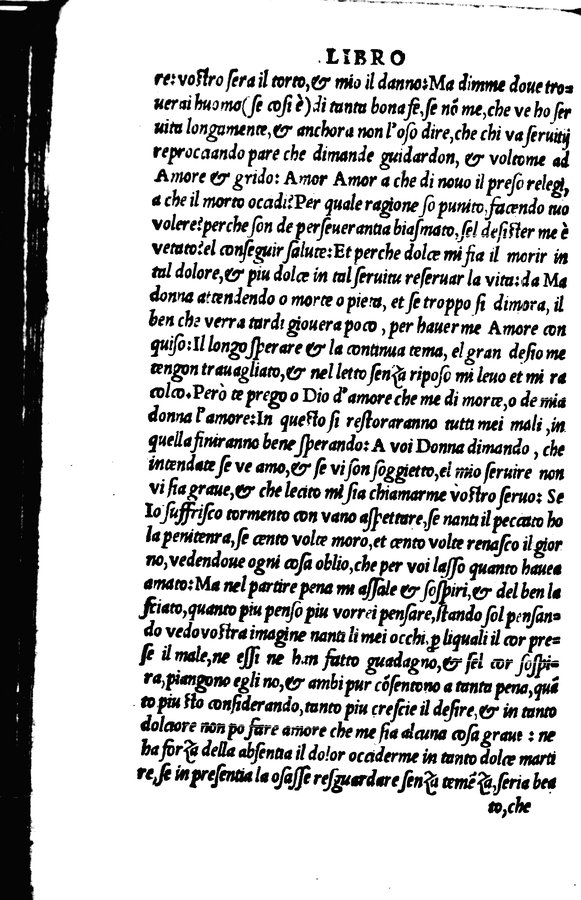 LIBRO
re:vostro sera il torto,& mio il danno:Ma dimme doue tro=
uerai huomo(se cosi è)di tanta bona fe,se nõ me,che ve ho ser
uita longamente,& anchora non l'oso dire,che chi va seruitij
reprocciando pare che dimande guidardon, & voltome ad
Amore & grido: Amor Amor a che di nouo il preso relegi,
a che il morto occidi?Per quale ragione so punito,facendo tuo
volere?perche son de perseuerantia biasmato,sel desister me è
vetato?el conseguir salute:Et perche dolce mi fia il morir in
tal dolore,& piu dolce in tal seruitu reseruar la vita:da Ma
donna attendendo o morte o pieta, et se troppo si dimora, il
ben che verra tardi giouera poco , per hauerme Amore con
quiso:Il longo sperare & la continua tema, el gran desio me
tengon trauagliato,& nel letto senza riposo mi leuo et mi ra
colco.Però te prego o Dio d'amore che me di morte,o de mia
donna l'amore:In questo si restoraranno tutti mei mali ,in
quella finiranno bene sperando: A voi Donna dimando , che
intendate se ve amo,& se vi son soggietto,el mio seruire non
vi sia graue,& che lecito mi sia chiamarme vostro seruo: Se
Io suffrisco tormento con vano aspettare,se nanti il peccato ho
la penitenra,se cento volte moro,et cento volte renasco il gior
no,vedendoue ogni cosa oblio,che per voi lasso quanto hauea
amato:Ma nel partire pena mi assale & sospiri,& del ben la
sciato,quanto piu penso piu vorrei pensare,stando sol pensan=
do vedo vostra imagine nanti li mei occhi,ꝑ liquali il cor pre=
se il male,ne essi ne han fatto guadagno,& sel cor sospi=
ra,piangono egli no,& ambi pur cõsentono a tanta pena,quã
to piu sto considerando,tanto piu crescie il desire,& in tanto
dolciore non po fare amore che me sia alcuna cosa graue : ne
ha forza della absentia il dolor occiderme in tanto dolce marti
re,se in presentia la osasse resguardare senza temẽza,seria bea
to,che